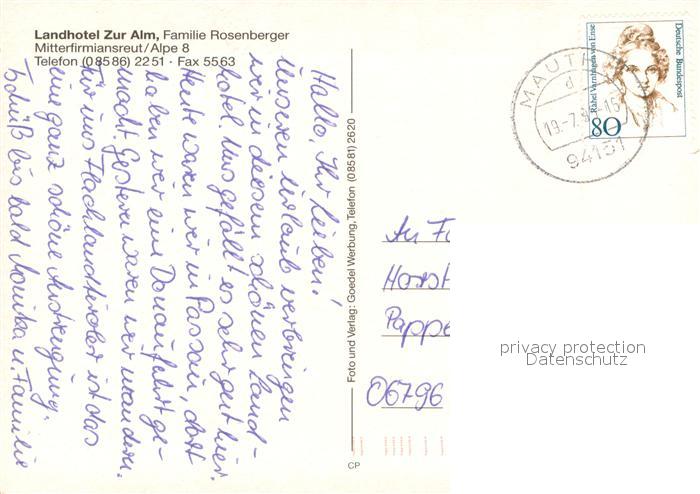 Landhotel Zur Alm, Familie Rosenberger
Mitterfirmiansreut/Alpe 8
Telefon (08586) 2251 · Fax 5563
Hallo, Ihr Lieben!
Unseren Urlaub verbringen
wir in diesem schönen Land-
hotel. Uns gefällt es sehr gut hier.
Heute waren wir in Passau, dort
haben wir eine Donaufahrt ge-
macht. Gestern waren wir wandern.
Für uns Flachlandtiroler ist das
eine ganz schöne Anstrengung.
Tschüß bis bald Monika u. Familie
Foto und Verlag: Goedel Werbung, Telefon (08581) 2620
CP
An F
Horst
Pappe
06796
Deutsche Bundespost
Rahel Varnhagen von Ense
80
MAUTH
d
19.-7.9 -16
94151
privacy protection
Datenschutz